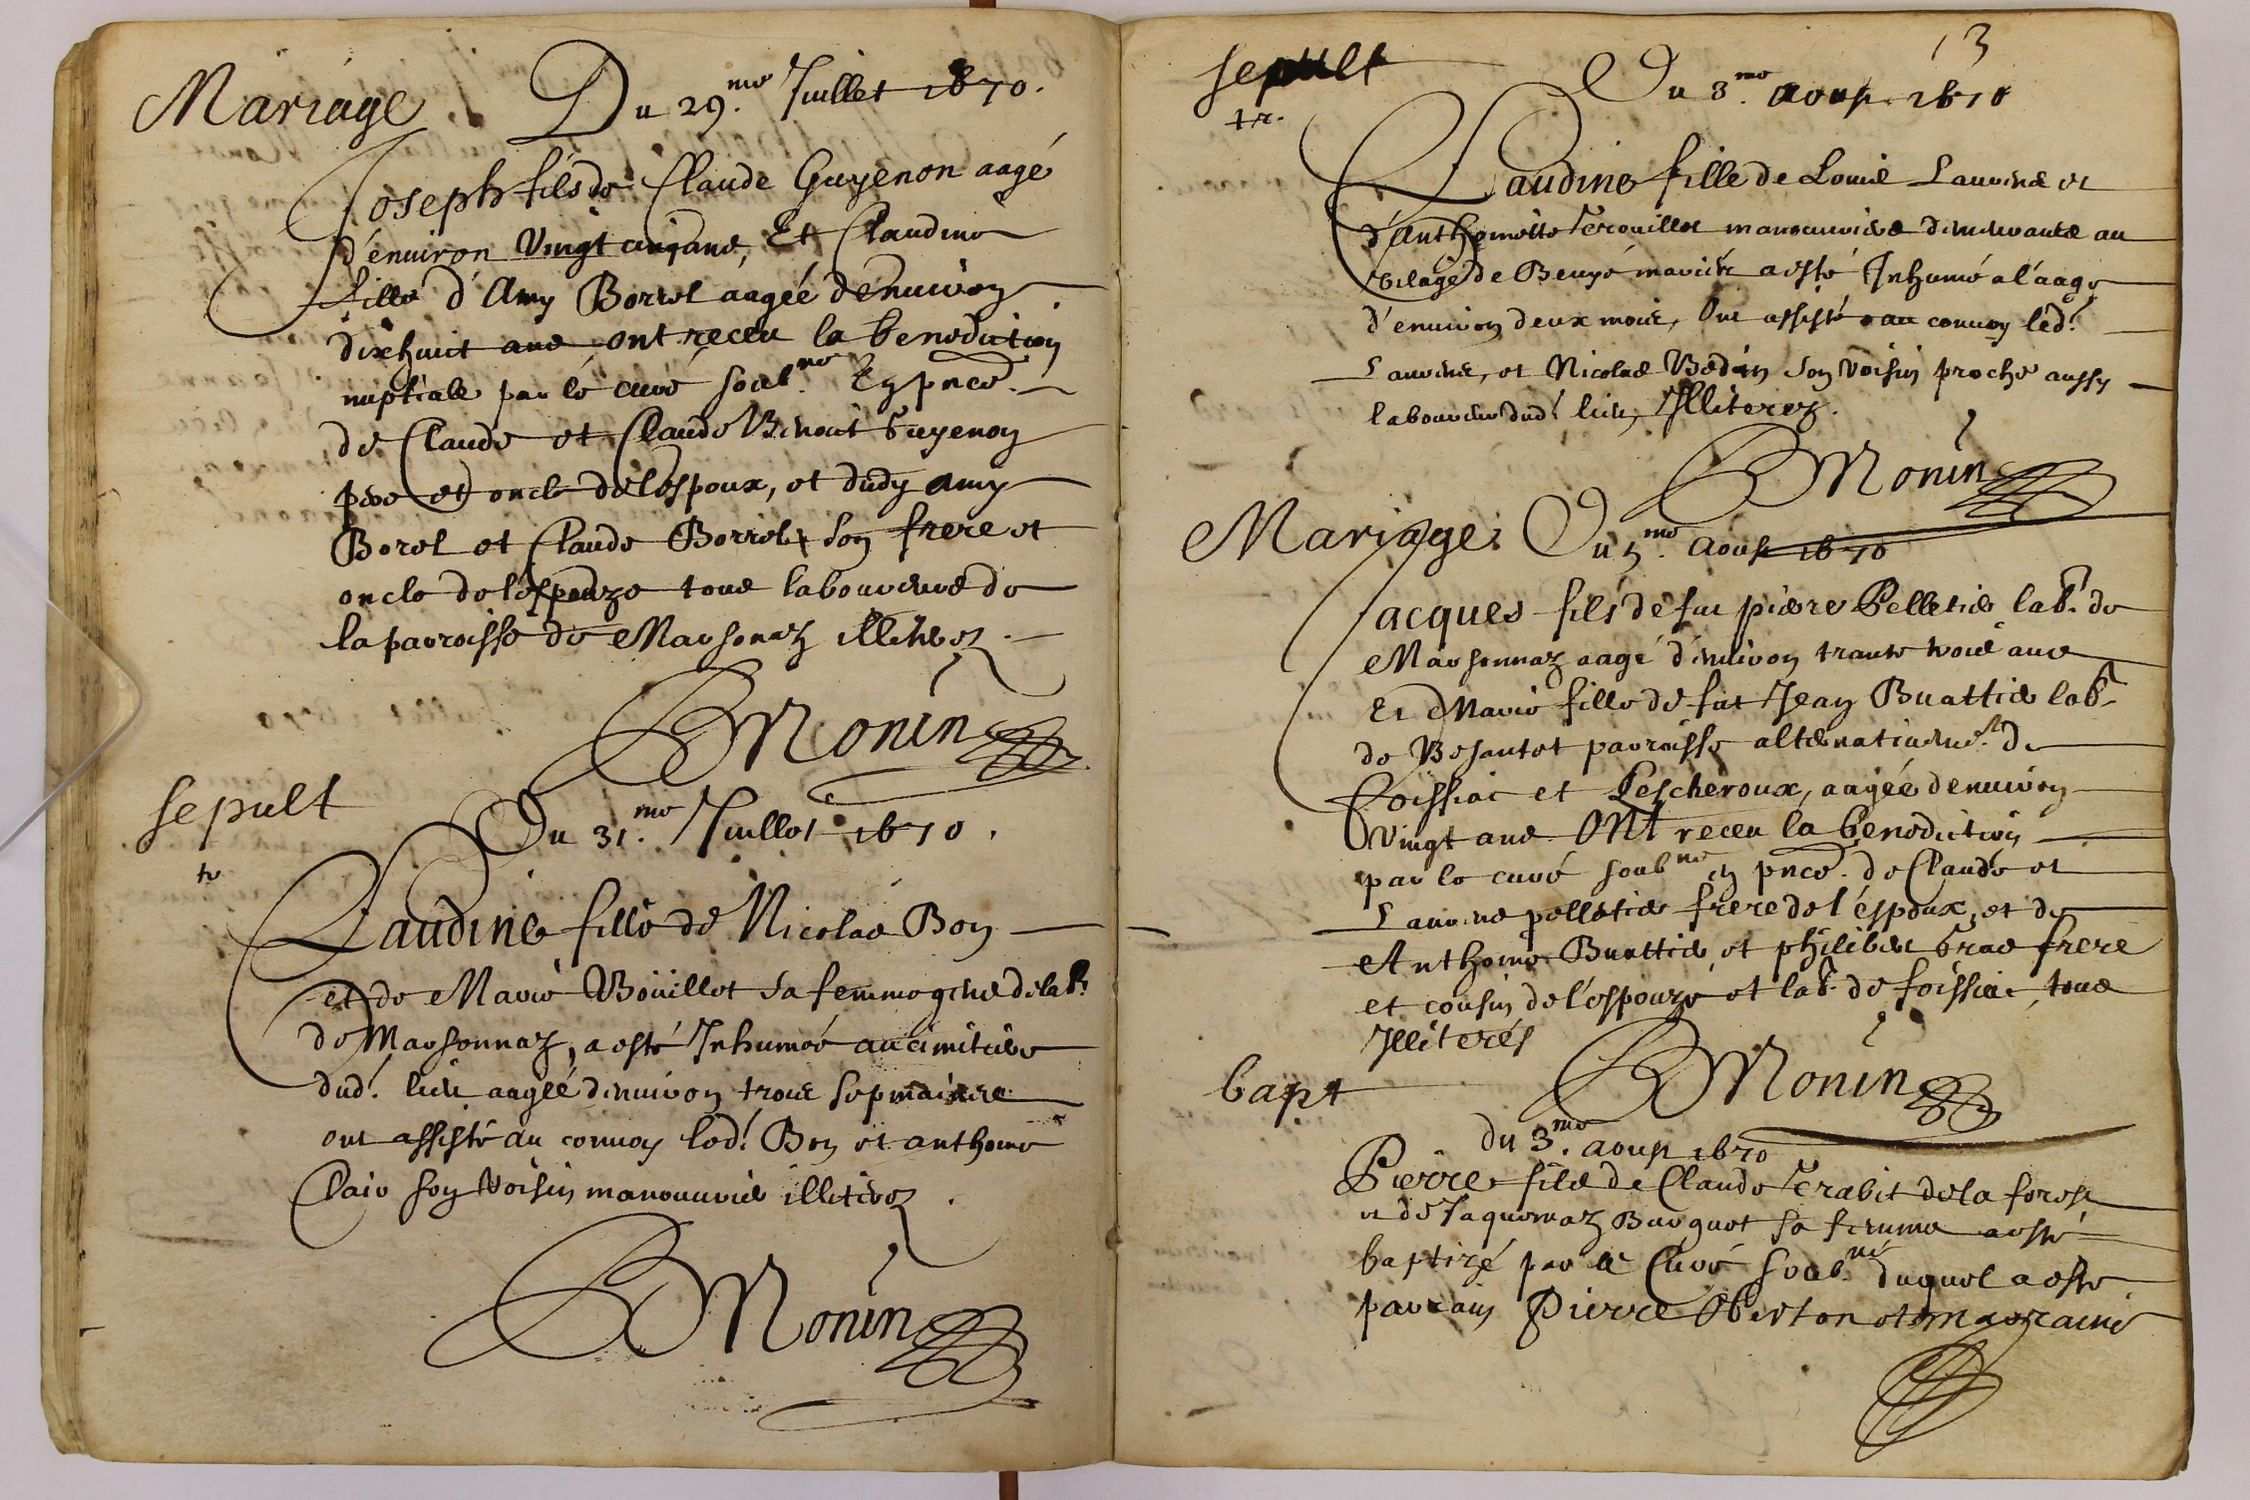 Mariage Du 29.me Juillet 1670.
Joseph fils de Claude Guyenon aagé
d'enuiron Vingt cinq ans, Et Claudine
fille d'Amy Borrel aagée d'enuiron
dixhuict ans ont receu la benediction
nuptiale par le curé soub.né En pnce.
de Claude et Claude Benoict Guyenon
pere et oncle de l'espoux, et dudy Amy
Borel et Claude Borrel son frere et
oncle de l'espouze tous laboureurs de
la parroisse de Marsonnaz illiterez.
BMonin
sepult
Du 31.me Juillet 1670.
tr
Claudine fille de Nicolas Bon
et de Marie Boüillet sa femme gens de lab.
de Marsonnaz, a esté Inhumée au cimitiere
dud. lieu aagée d'enuiron trois sepmaines
ont assisté au conuoy led. Bon et anthoine
Clair son voisin manouurier illiterez.
BMonin
13
sepult
Du 3.me aoust 1670
tr.
Claudine fille de Louis Laurens et
d'Anthoinette Terouillet manouuriers demeurants au
vilage de Beuyé mariés a esté Inhumé a l'aage
d'enuiron deux mois, Ont assisté au conuoy led.
Laurens, et Nicolas Bedin son voisin proche aussy
laboureur dud. lieu, Illiterez.
BMonin
Mariage. Du 5.me Aoust 1670
Jacques fils de fut pierre Pelletier lab. de
Marsonnaz aagé d'enuiron trante trois ans
Et Marie fille de fut Jean Buattier lab.
de Besantet parroisse alternatiuem.t de
Foissiat et Lescheroux, aagée d'enuiron
Vingt ans Ont receu la benediction
par le curé soub.né en pnce. de Claude et
Laurens pelletier frere de l'éspoux, et de
Anthoine Buattier et philibert Gras frere
et cousin de l'espouze et lab. de foissiat, tous
Illiterés
BMonin
bapt
du 3.me aoust 1670
Pierre fils de Claude Terabit de la forest
et de Jaquemaz Burquet sa femme a esté
baptizé par le Curé soub.né duquel a esté
parrain Pierre Oberton et marraine